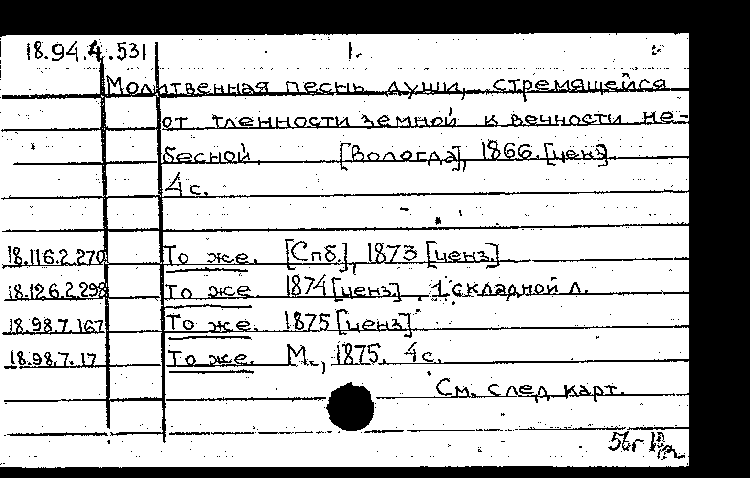 18.94.4.531 1.
Молитвенная песнь души, стремящейся
от тленности земной к вечности не-
бесной. [Вологда], 1866. [ценз].
4 с.
18.116.2.270 То же. [Спб.], 1873 [ценз.]
18.126.2.298 То же 1874 [ценз] 1 складной л.
18.98.7.167 То же. 1875 [ценз].
18.98.7.17 То же. М., 1875. 4 с.
См. след карт.
56г